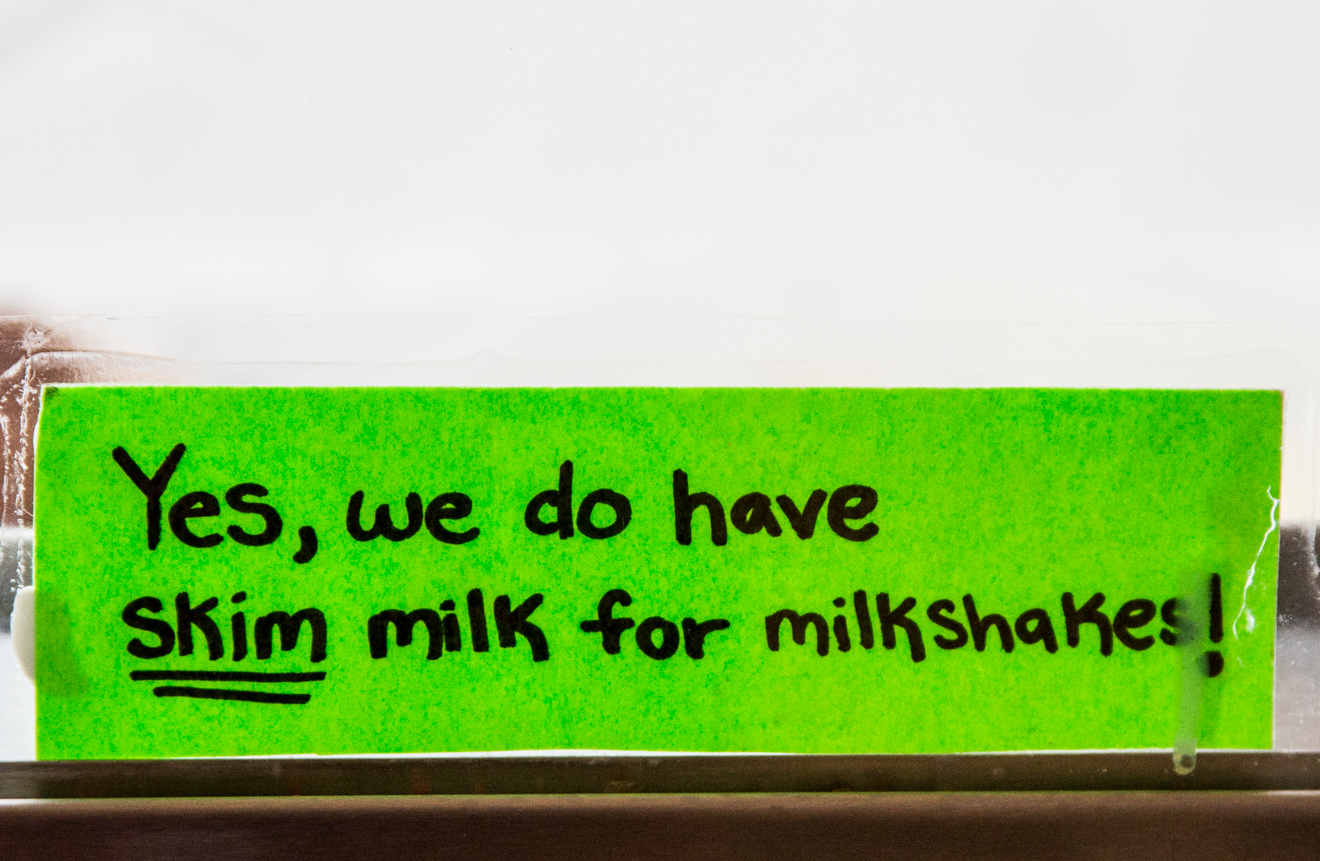 Yes, we do have
skim milk for milkshakes!